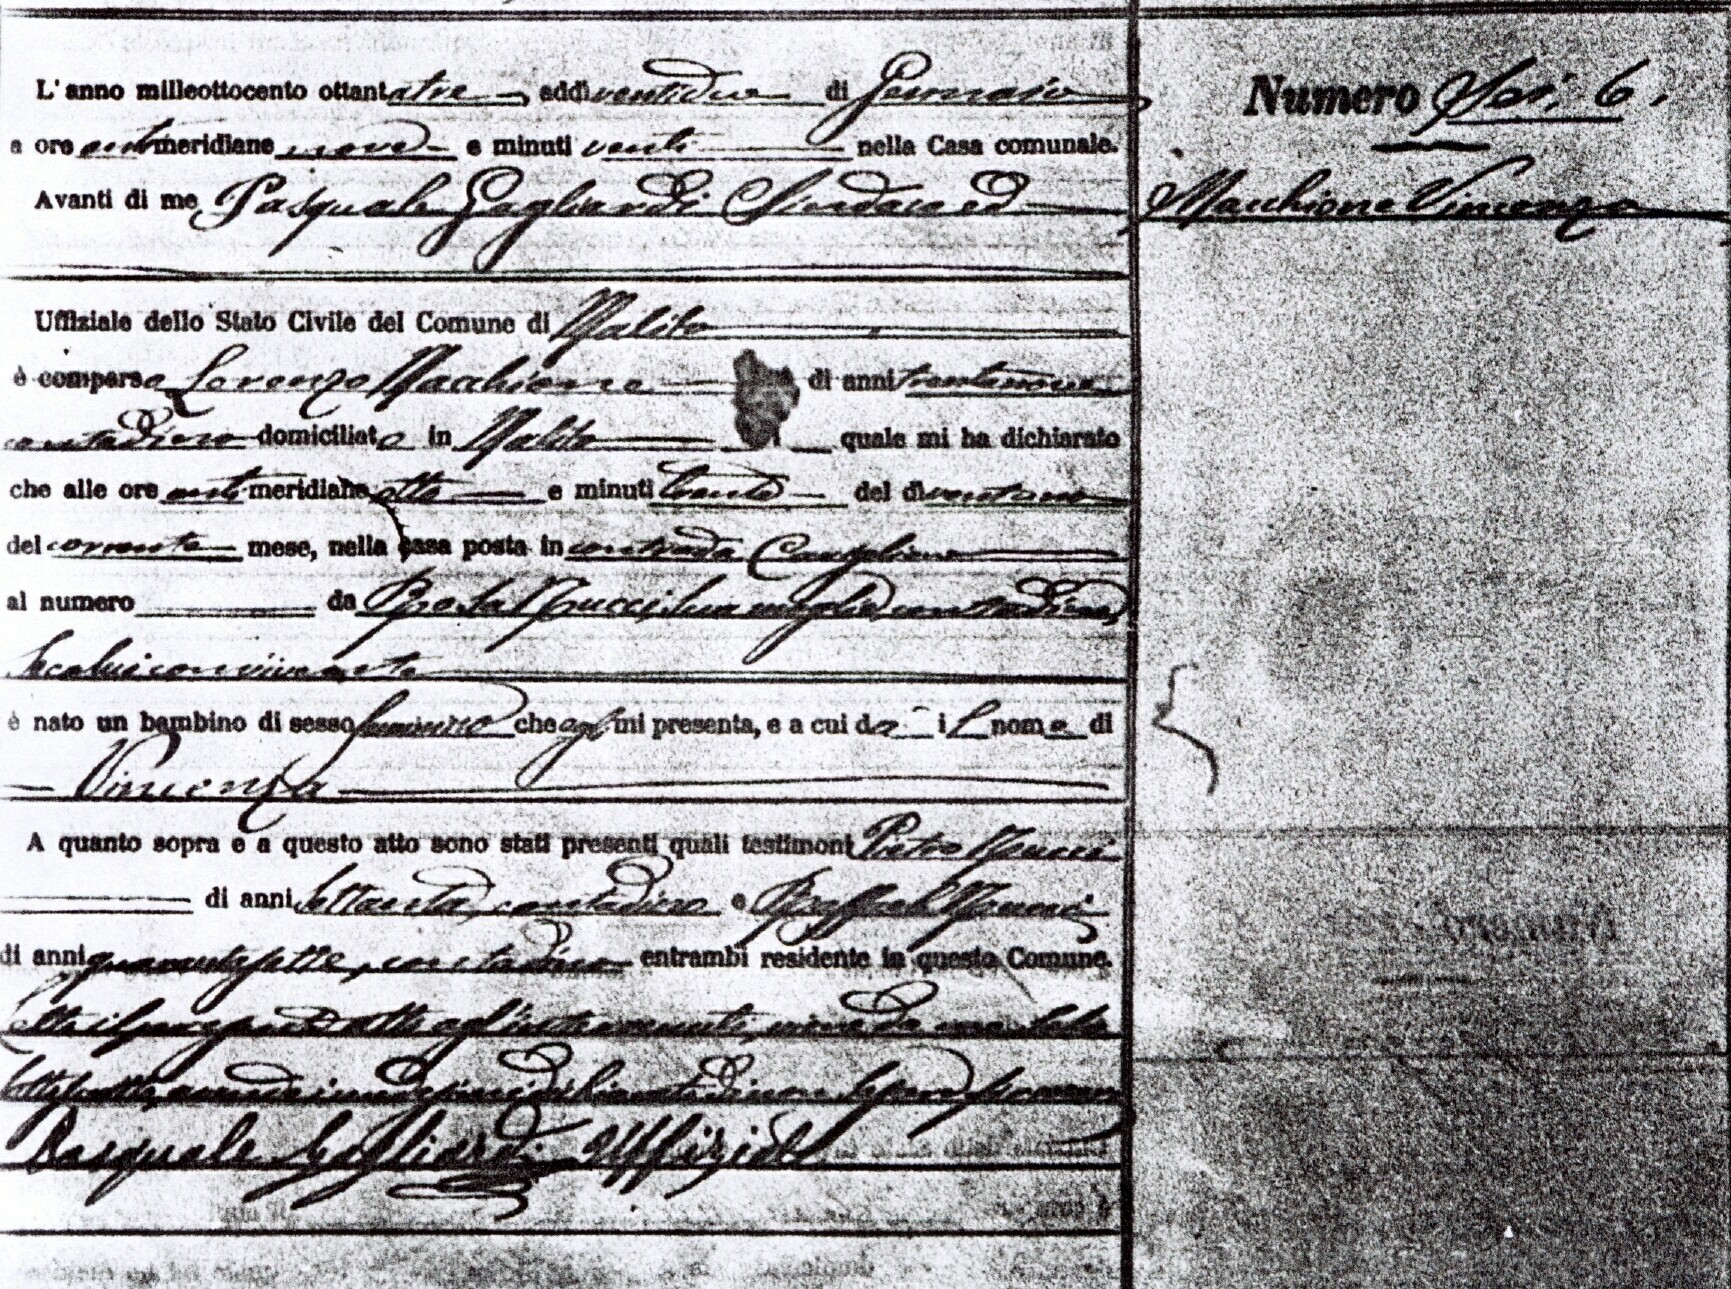 L'anno milleottocento ottantatre, addi ventidue di Gennaio
a ore antimeridiane nove e minuti venti nella Casa comunale.
Avanti di me Pasquale Gagliardi Sindaco ed
Uffiziale dello Stato Civile del Comune di Malito
è comparso Lorenzo Macchione di anni trentanove
contadino domiciliato in Malito quale mi ha dichiarato
che alle ore antimeridiane otto e minuti trenta del dì ventuno
del corrente mese, nella casa posta in contrada
al numero da Rosa Mucci, sua moglie, contadina,
seco lui convivente
è nato un bambino di sesso femminino che egli mi presenta, e a cui da il nome di
Vincenza
A quanto sopra e a questo atto sono stati presenti quali testimoni Pietro Mucci
di anni settanta, contadino e Raffaele Mucci
di anni quarantasette, contadino entrambi residente in questo Comune.
Letto il presente atto agl'intervenuti,
Pasquale Gagliardi Uffiziale
Numero Sei. 6.
Macchione Vincenza